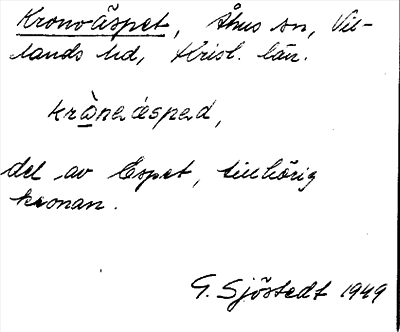 Kronoäspet, Åhus sn, Vil-
lands hd, Krist. län.
krònəáspəd,
del av Espet, tillhörig
kronan.
G. Sjöstedt 1949